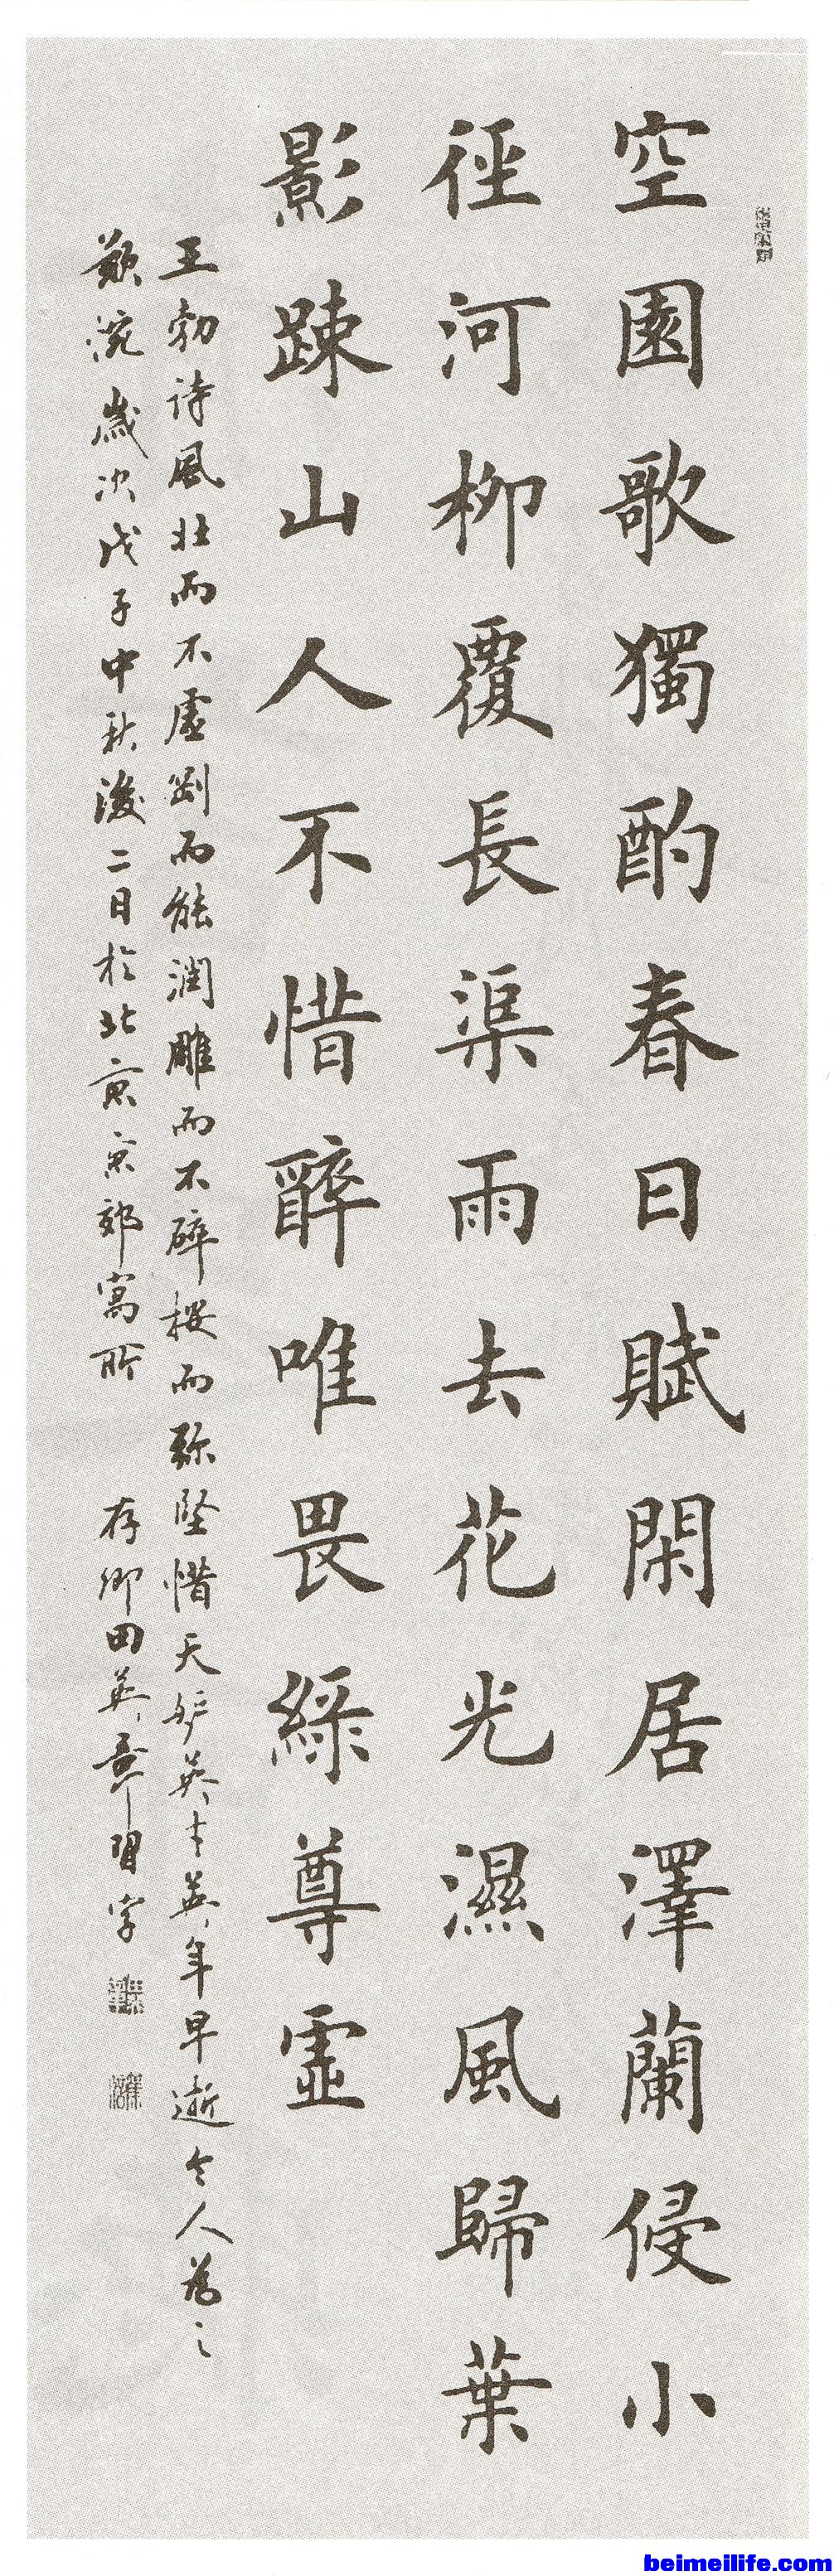 空園歌獨酌春日賦閑居澤蘭侵小
徑河柳覆長渠雨去花光濕風歸葉
影踈山人不惜醉唯畏綠尊虛
王勃诗風壯而不虛剛而能潤雕而不碎按而弥堅惜天妒英才英年早逝令人為之
歎惋歲次戊子中秋後二日於北京京郊寓所 存卿田英章習字
beimeilife.com